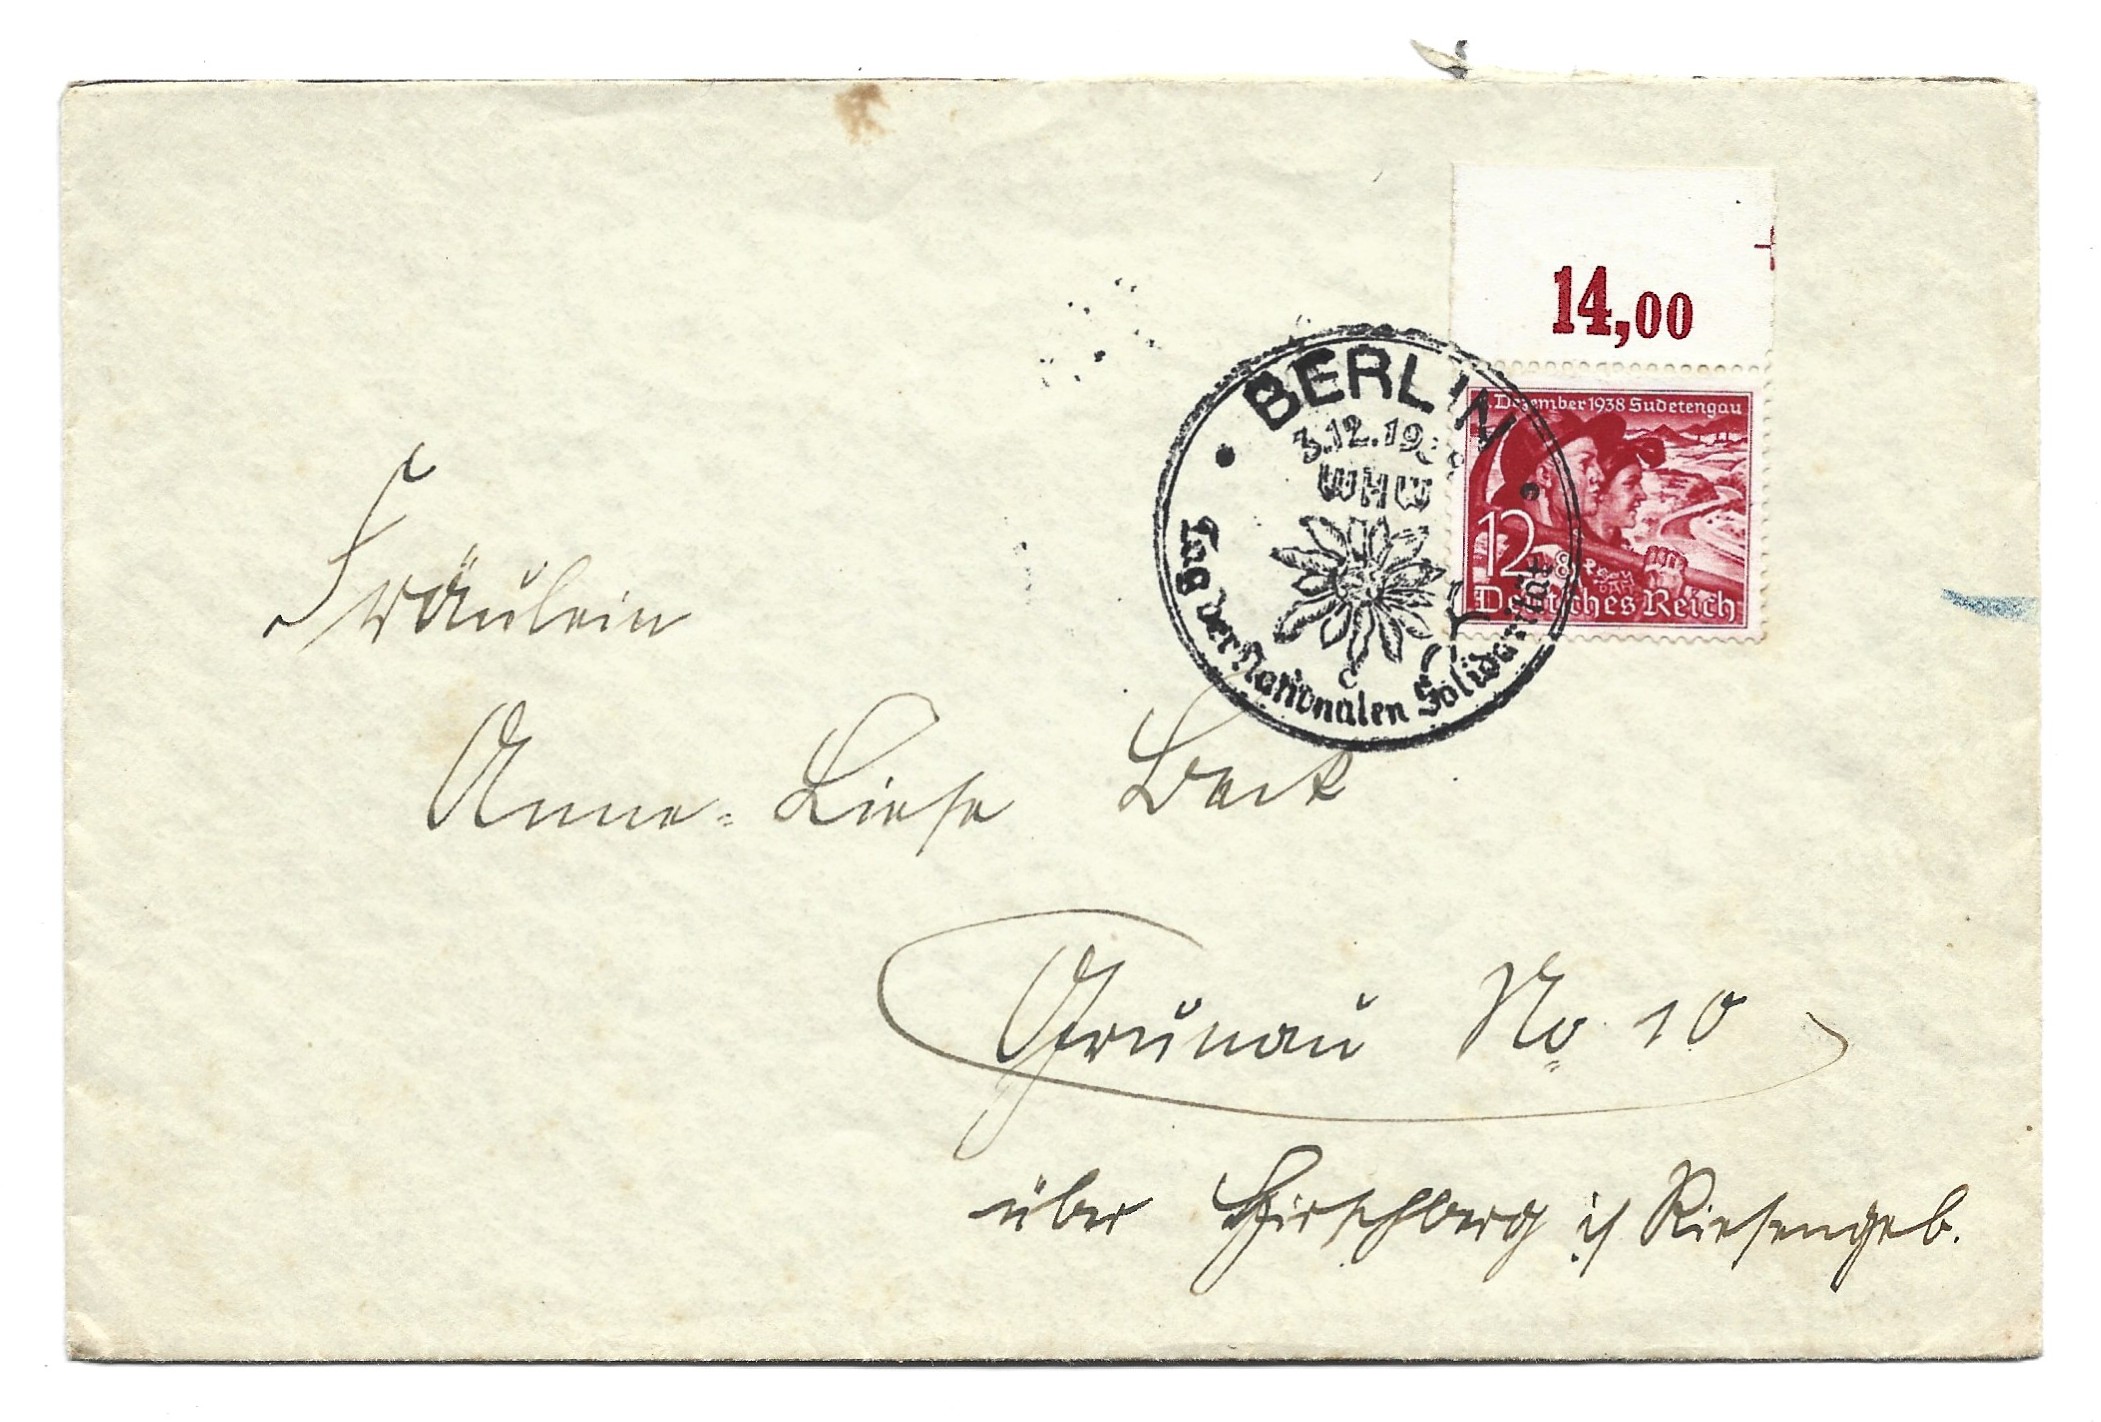 14,00
BERLIN
3.12.1938
WHW
c
Tag der Nationalen Solidarität
Dezember 1938 Sudetengau
12+8
Deutsches Reich
Fräulein
Anne-Liese Beck
Grunau No. 10
über Hirschberg i/ Riesengeb.